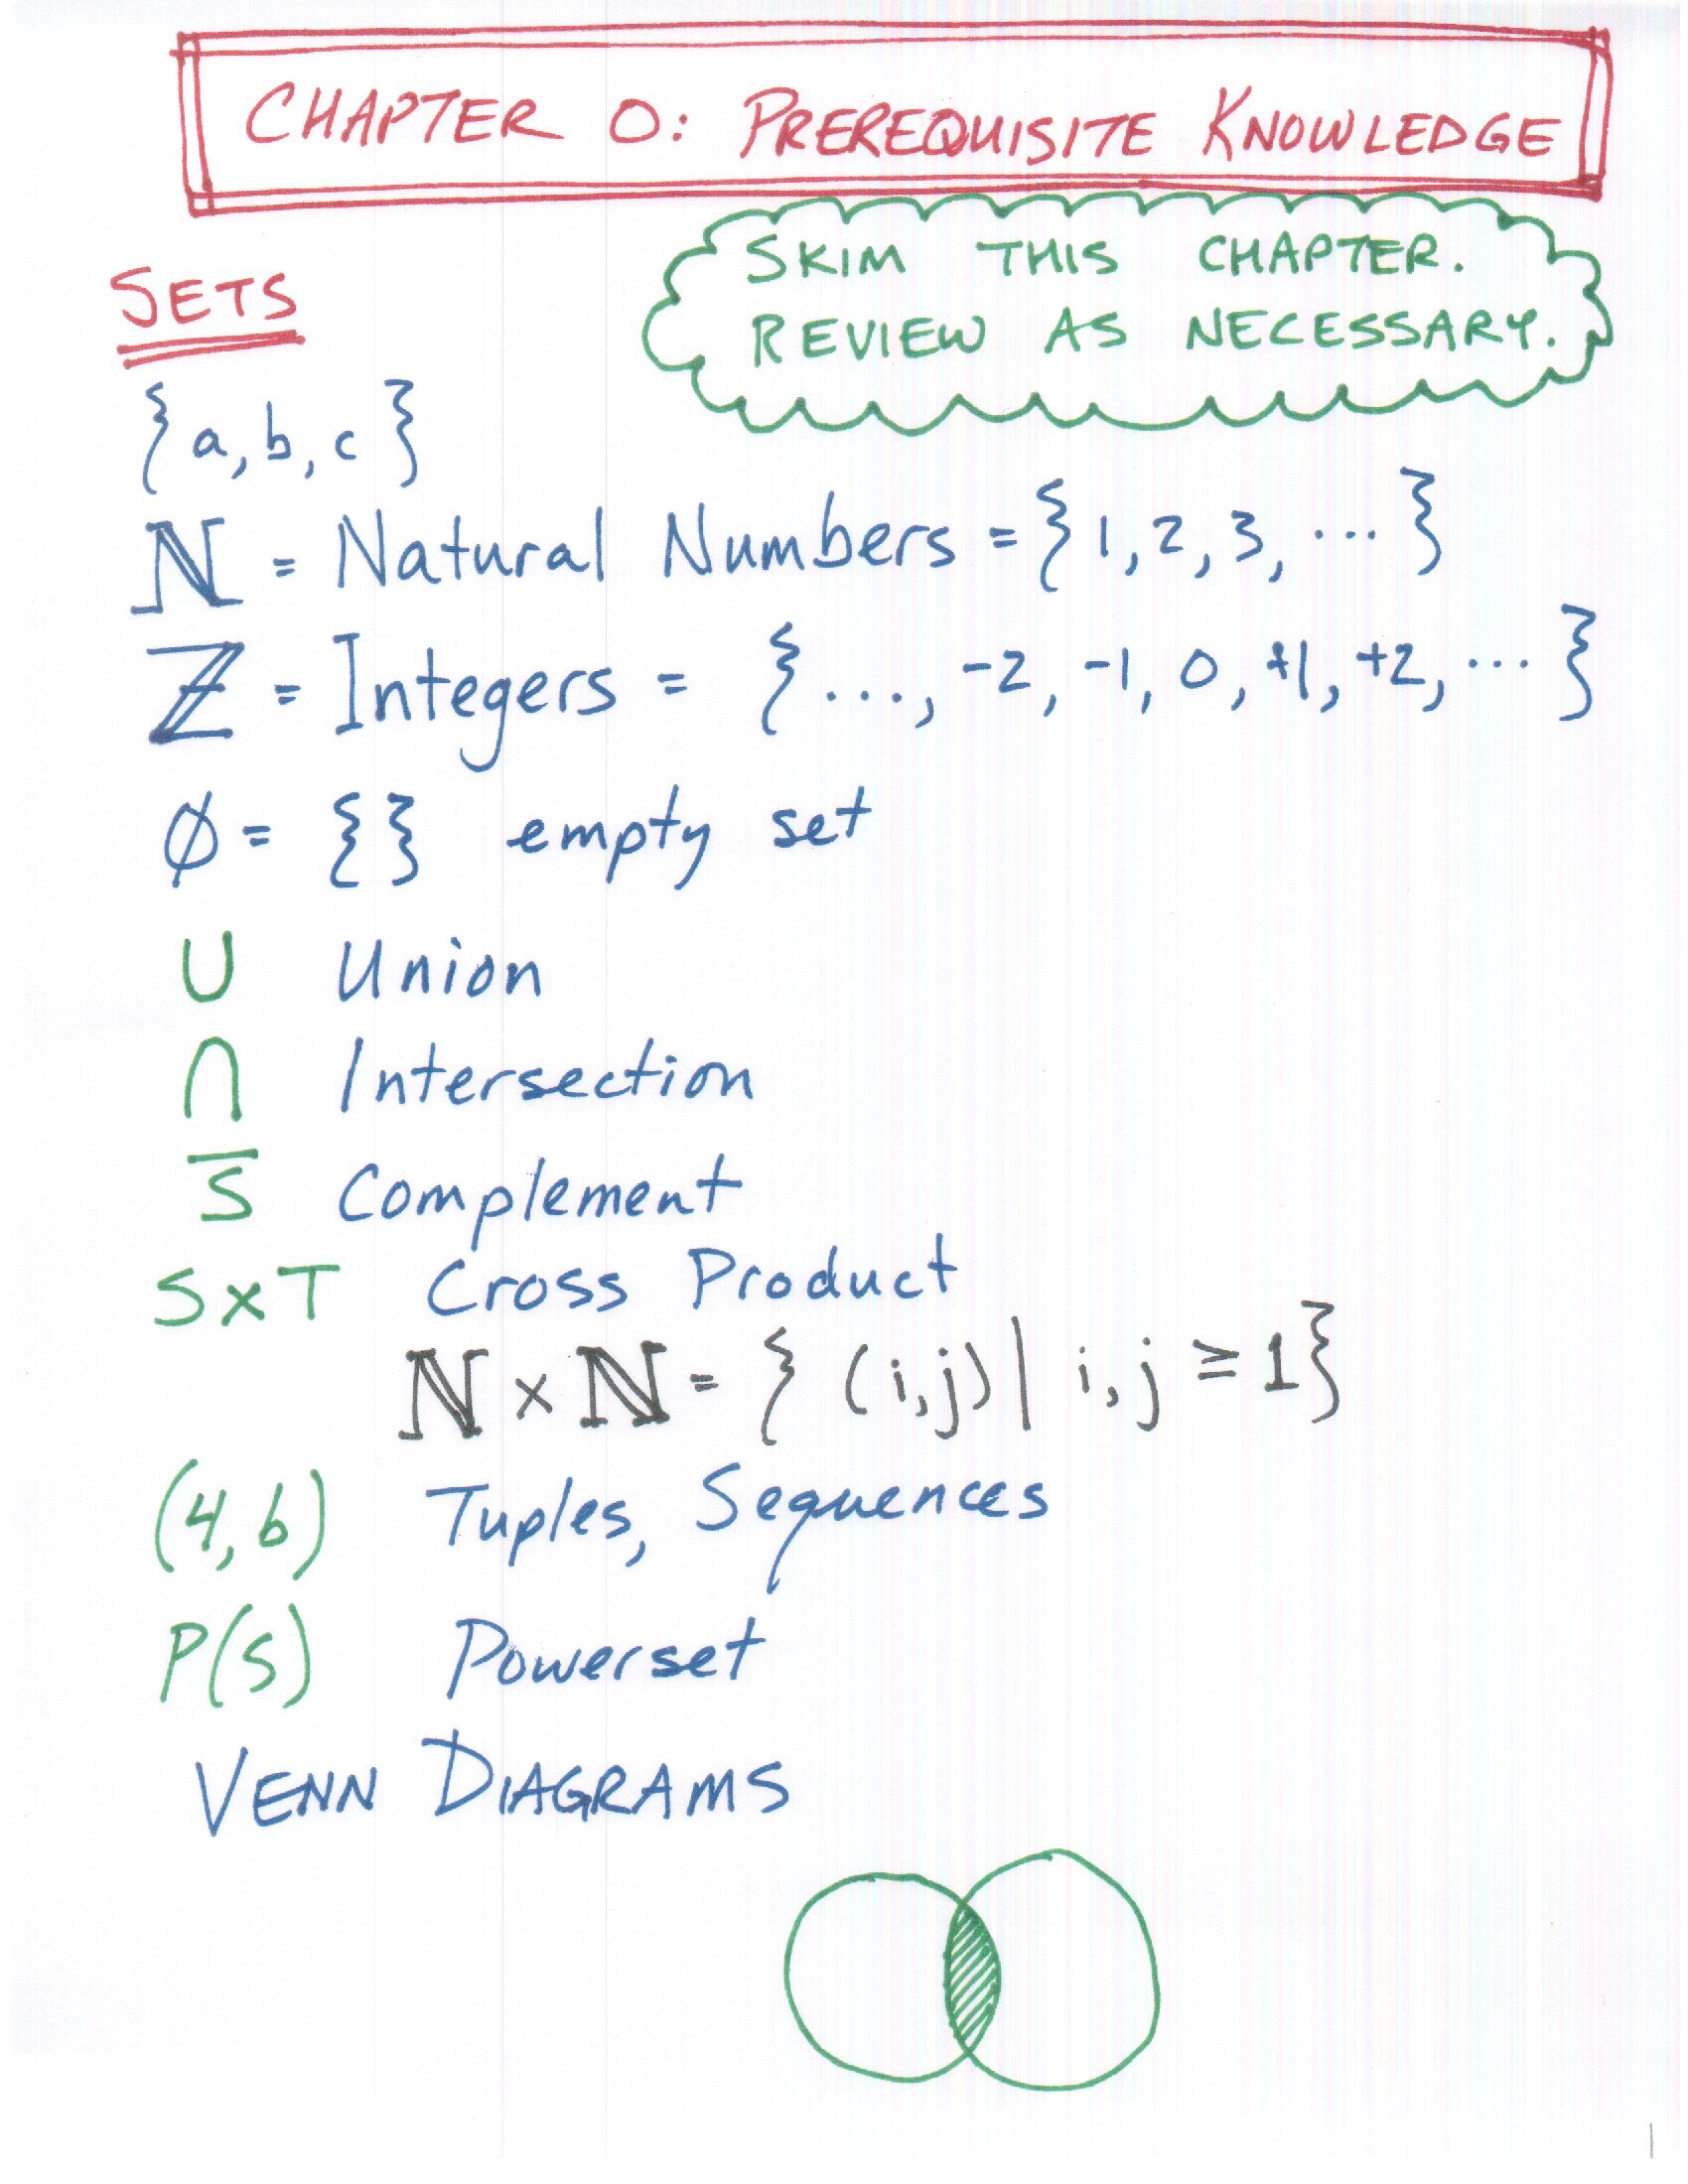 CHAPTER 0: PREREQUISITE KNOWLEDGE
SKIM THIS CHAPTER.
REVIEW AS NECESSARY.
SETS
{a, b, c}
ℕ = Natural Numbers = {1, 2, 3, ...}
ℤ = Integers = {..., -2, -1, 0, +1, +2, ...}
∅ = {} empty set
∪ Union
∩ Intersection
S̅ Complement
S×T Cross Product
ℕ × ℕ = { (i,j) | i, j ≥ 1}
(4, b) Tuples, Sequences
P(S) Powerset
VENN DIAGRAMS